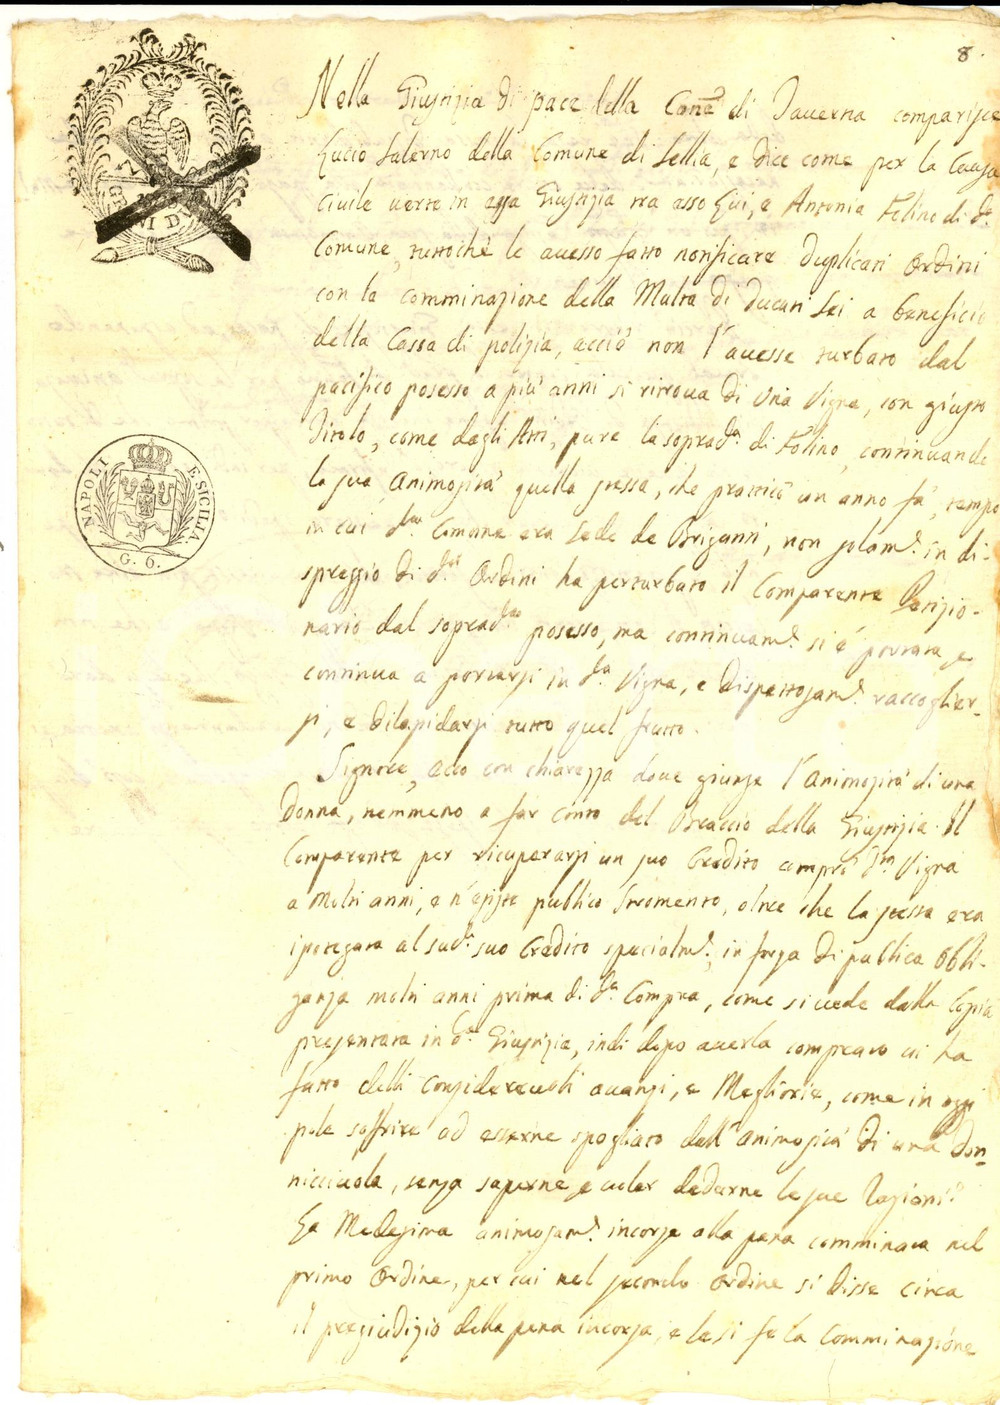 8.
Nella Giustizia di pace della Com.e di Taverna comparisce
Lucio Salerno della Comune di Sellia, e dice come per la Causa
Civile verte in essa Giustizia tra esso Lui, e Antonia Folino di d.a
Comune, tuttochè le avesse fatto notificare duplicati Ordini
con la comminazione della Multa di Ducati Sei a beneficio
della Cassa di polizia, acciò non l'avesse turbato dal
pacifico posesso a più anni si ritrova di una Vigna, con giusto
Titolo, come dagli Atti, pure la soprad.a di Folino, continuando
la sua Animosità quella stessa, che pratticò un anno fà, tempo
in cui d.ta Comune era Sede de Briganti, non solam.e in di-
spreggio di d.ti Ordini ha perturbato il Comparente Petizio-
nario dal soprad.to posesso, ma continuam.e si è portata e
continua a portarsi in d.ta Vigna, e dispettosam.e raccoglier-
si, e dilapidarsi tutto quel frutto.
Signore, ecco con chiarezza dove giunge l'animosità di una
donna, nemmeno a far conto del Braccio della Giustizia. Il
Comparente per ricuperarsi un suo Credito comprò d.ta Vigna
a molti anni, e n'esiste publico Istromento, oltre che la stessa era
ipotegata al sud.o suo Credito specialm.e, in forza di publica Obli-
ganza molti anni prima di d.a Compra, come si vede dalla Copia
presentata in d.a Giustizia, indi dopo averla comprato vi ha
fatto delli considerevoli avanzi, e Megliorie, come in oggi
pole soffrire ad esserne spogliato dall'animosità di una don=
nicciuola, senza saperne e voler dedurne le sue Ragioni?
La Medesima animosam.e incorse alla pena comminata nel
primo Ordine, per cui nel secondo Ordine si disse circa
il pregiudizio della pena incorsa, e le si fe la Comminazione
NAPOLI E SICILIA
G. 6.